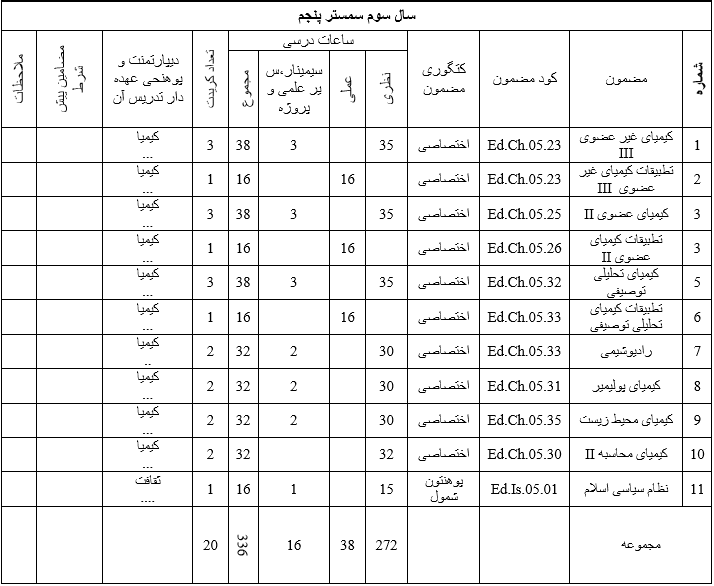 سال سوم سمستر پنجم
شماره | مضمون | کود مضمون | کتگوری مضمون | ساعات درسی | تعداد کریدت | دیپارتمنت و پوهنحی عهده دار تدریس آن | مضامین پیش شرط | ملاحظات
نظری | عملی | سیمینار،س یر علمی و پروژه | مجموع
1 | کیمیای غیر عضوی III | Ed.Ch.05.23 | اختصاصی | 35 | | 3 | 38 | 3 | کیمیا ...
2 | تطبیقات کیمیای غیر عضوی III | Ed.Ch.05.23 | اختصاصی | | 16 | | 16 | 1 | کیمیا ...
3 | کیمیای عضوی II | Ed.Ch.05.25 | اختصاصی | 35 | | 3 | 38 | 3 | کیمیا ...
3 | تطبیقات کیمیای عضوی II | Ed.Ch.05.26 | اختصاصی | | 16 | | 16 | 1 | کیمیا ...
5 | کیمیای تحلیلی توصیفی | Ed.Ch.05.32 | اختصاصی | 35 | | 3 | 38 | 3 | کیمیا ...
6 | تطبیقات کیمیای تحلیلی توصیفی | Ed.Ch.05.33 | اختصاصی | | 16 | | 16 | 1 | کیمیا ...
7 | رادیوشیمی | Ed.Ch.05.33 | اختصاصی | 30 | | 2 | 32 | 2 | کیمیا ..
8 | کیمیای پولیمیر | Ed.Ch.05.31 | اختصاصی | 30 | | 2 | 32 | 2 | کیمیا ...
9 | کیمیای محیط زیست | Ed.Ch.05.35 | اختصاصی | 30 | | 2 | 32 | 2 | کیمیا ...
10 | کیمیای محاسبه II | Ed.Ch.05.30 | اختصاصی | 32 | | | 32 | 2 | کیمیا ...
11 | نظام سیاسی اسلام | Ed.Is.05.01 | پوهنتون شمول | 15 | | 1 | 16 | 1 | ثقافت ....
مجموعه | 272 | 38 | 16 | 336 | 20